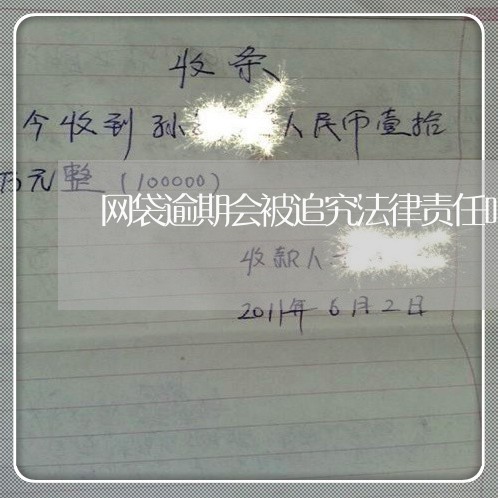 收条
今收到孙 人民币壹拾
万元整（100000）
网袋逾期会被追究法律责任
收款人
2011年6月2日